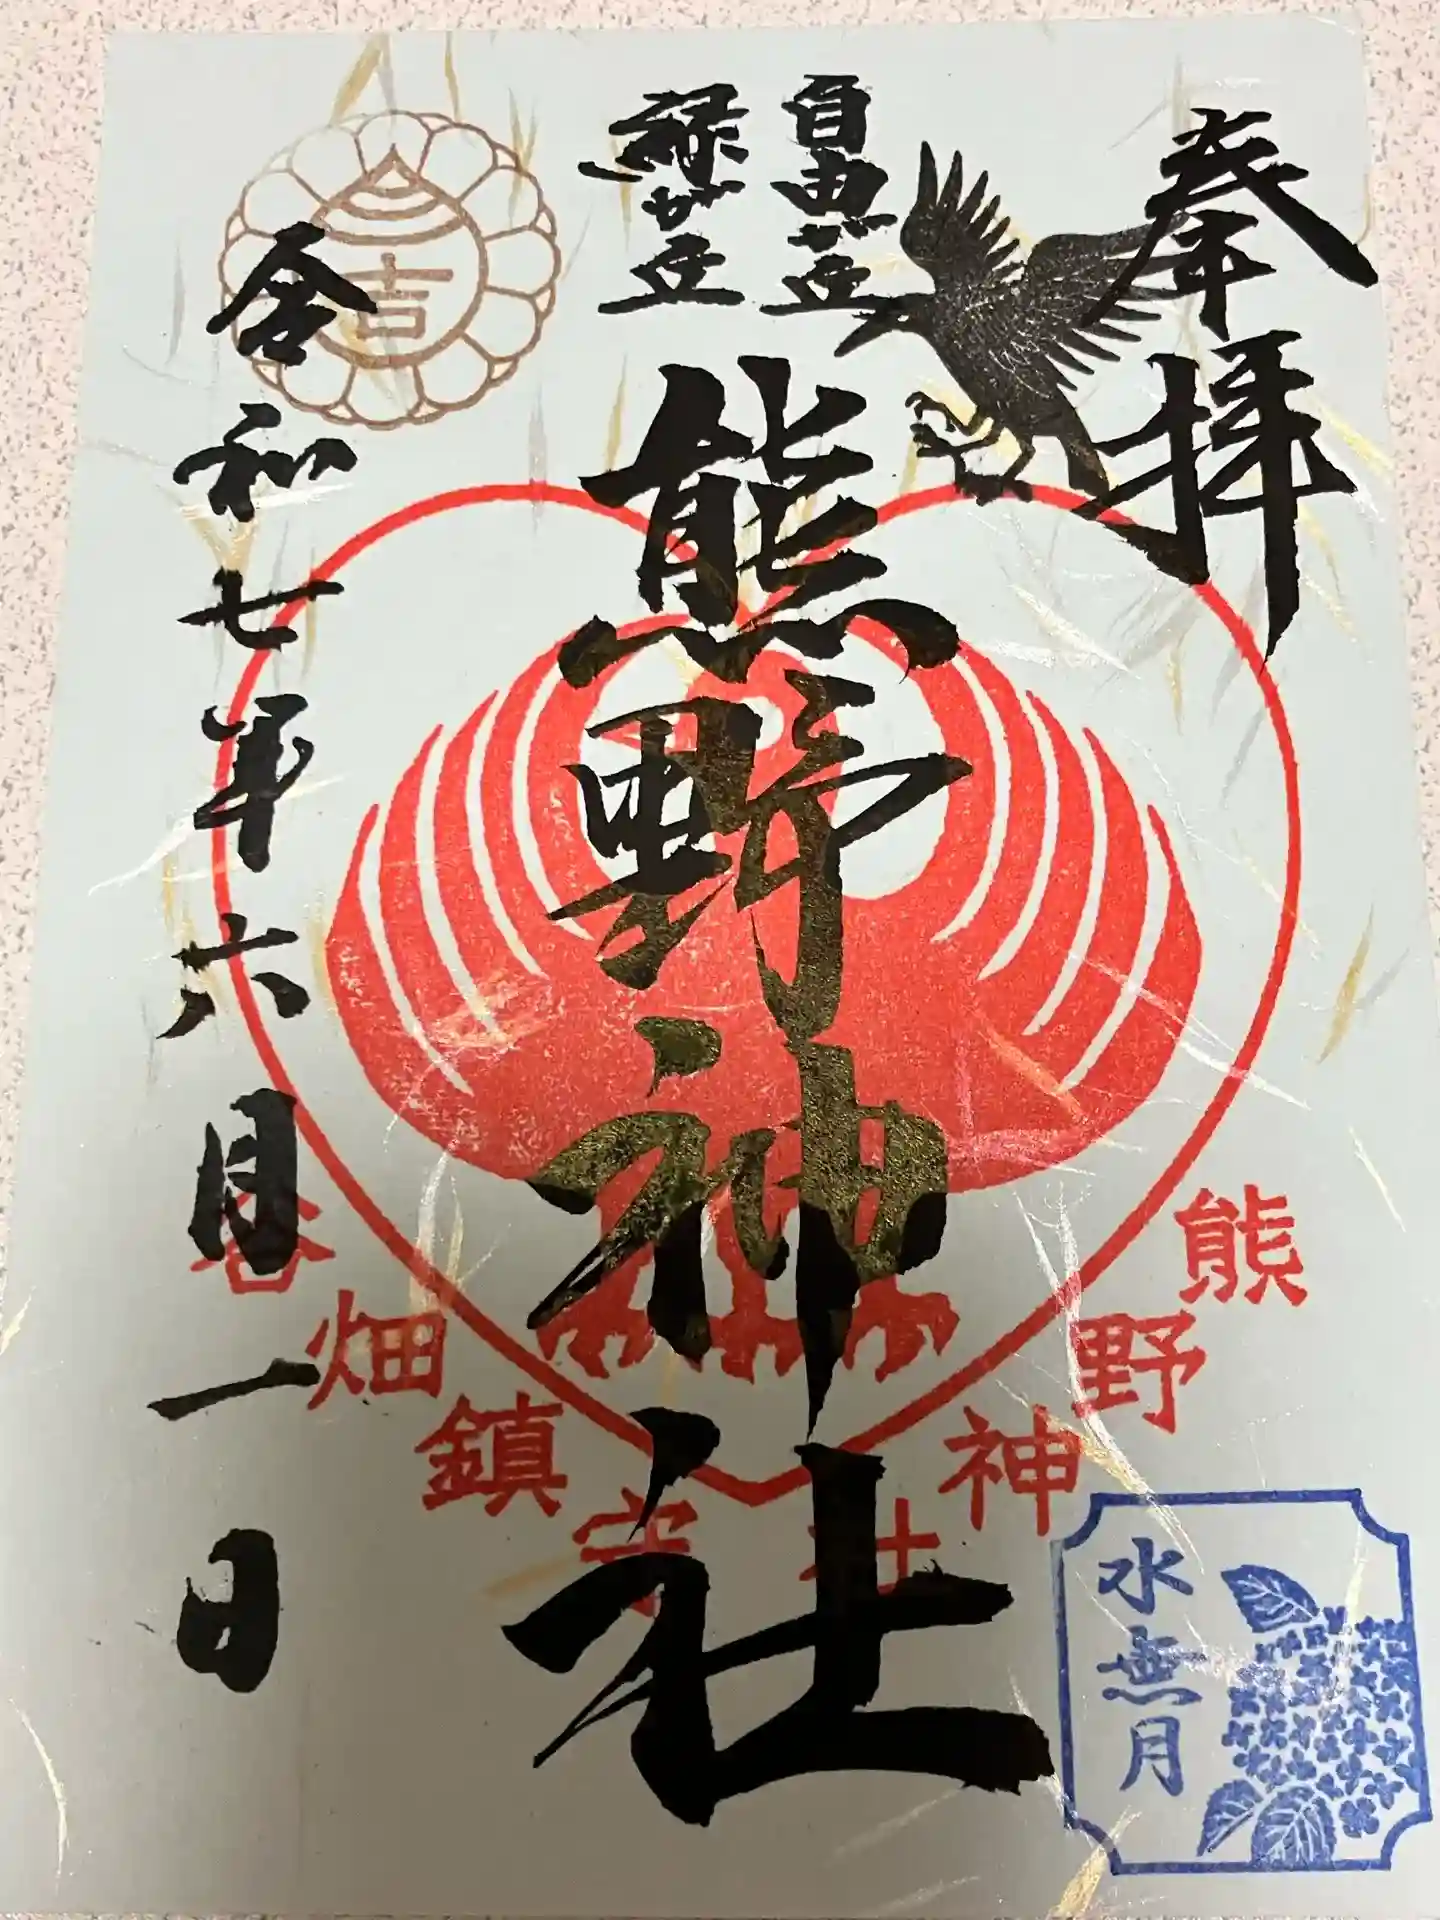 奉拝
自由が丘
緑が丘
熊野神社
吉
令和七年六月一日
熊野神社
谷畑鎮守
水無月